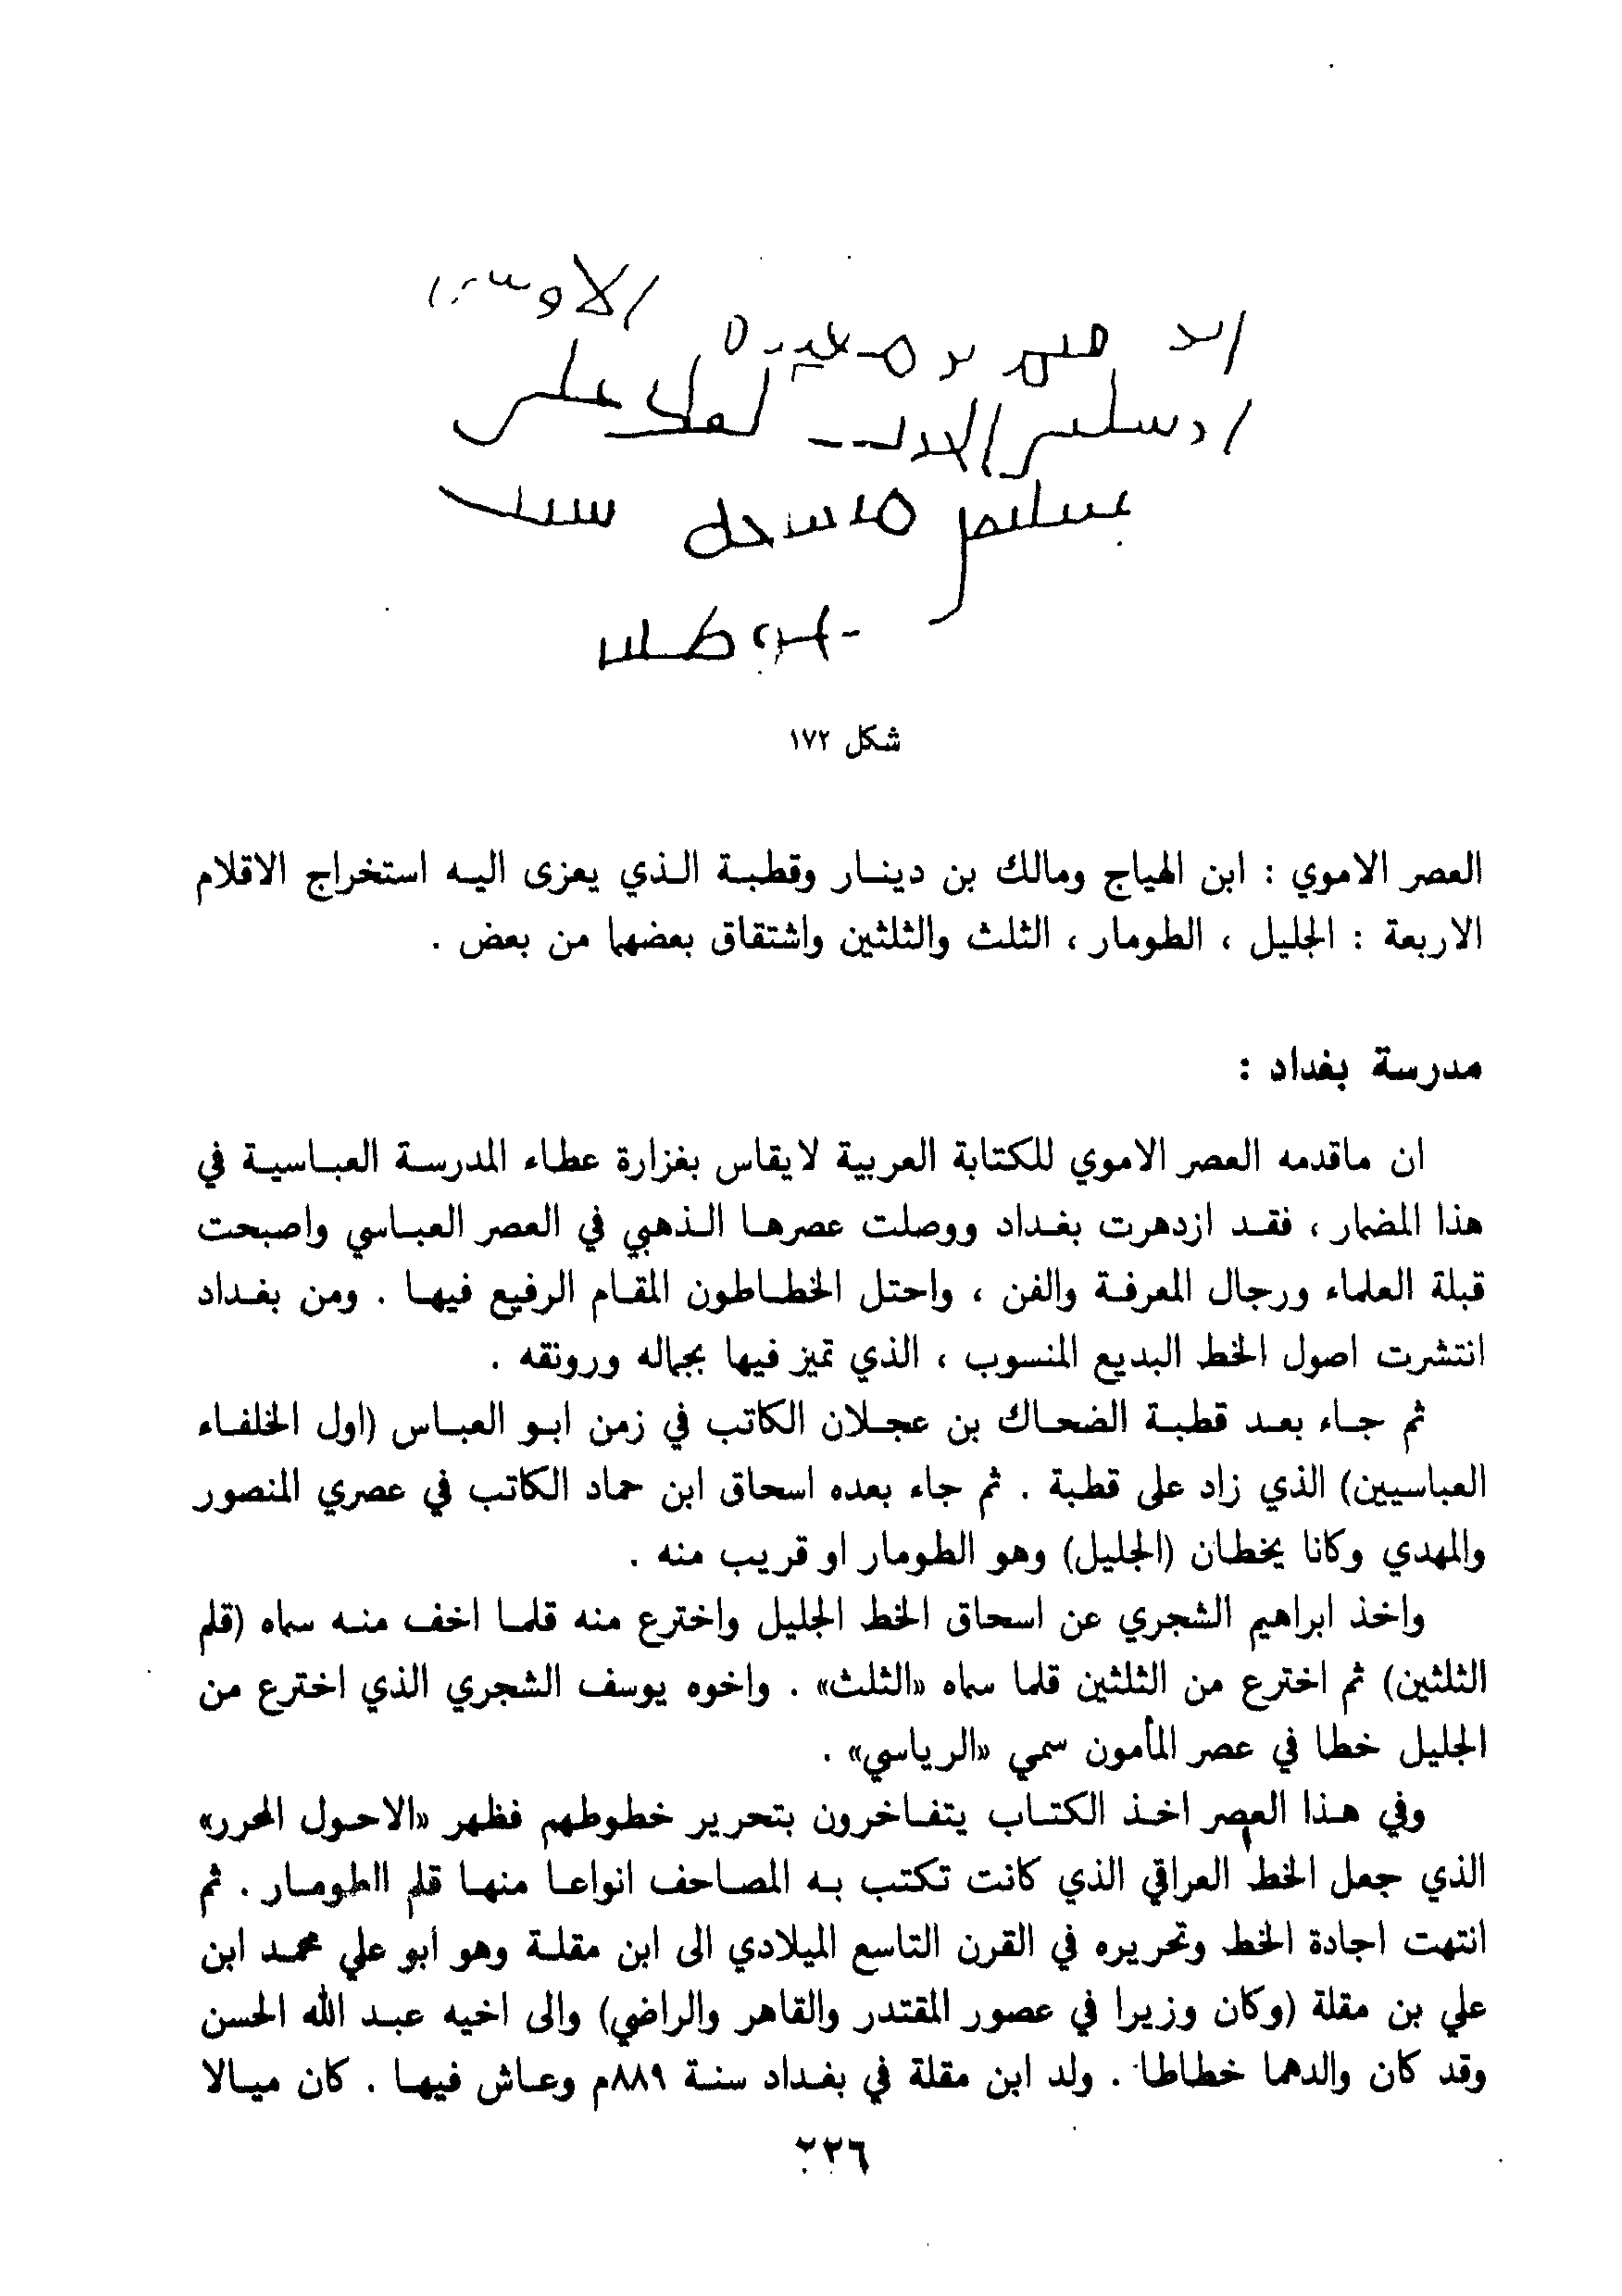 شكل ١٧٢
العصر الاموي : ابن الهياج ومالك بن دينار وقطبة الذي يعزى اليه استخراج الاقلام
الاربعة : الجليل ، الطومار ، الثلث والثلثين واشتقاق بعضها من بعض .
مدرسة بغداد :
ان ماقدمه العصر الاموي للكتابة العربية لايقاس بغزارة عطاء المدرسة العباسية في
هذا المضمار ، فقد ازدهرت بغداد ووصلت عصرها الذهبي في العصر العباسي واصبحت
قبلة العلماء ورجال المعرفة والفن ، واحتل الخطاطون المقام الرفيع فيها . ومن بغداد
انتشرت اصول الخط البديع المنسوب ، الذي تميز فيها بجماله ورونقه .
ثم جاء بعد قطبة الضحاك بن عجلان الكاتب في زمن ابو العباس (اول الخلفاء
العباسيين) الذي زاد على قطبة . ثم جاء بعده اسحاق ابن حماد الكاتب في عصري المنصور
والمهدي وكانا يخطان (الجليل) وهو الطومار او قريب منه .
واخذ ابراهيم الشجري عن اسحاق الخط الجليل واخترع منه قلما اخف منه سماه (قلم
الثلثين) ثم اخترع من الثلثين قلما سماه «الثلث» . واخوه يوسف الشجري الذي اخترع من
الجليل خطا في عصر المأمون سمي «الرياسي» .
وفي هذا العصر اخذ الكتاب يتفاخرون بتحرير خطوطهم فظهر «الاحول المحرر»
الذي جعل الخط العراقي الذي كانت تكتب به المصاحف انواعا منها قلم الطومار . ثم
انتهت اجادة الخط وتحريره في القرن التاسع الميلادي الى ابن مقلة وهو أبو علي محمد ابن
علي بن مقلة (وكان وزيرا في عصور المقتدر والقاهر والراضي) والى اخيه عبد الله الحسن
وقد كان والدهما خطاطا . ولد ابن مقلة في بغداد سنة ٨٨٩م وعاش فيها . كان ميالا
٢٢٦